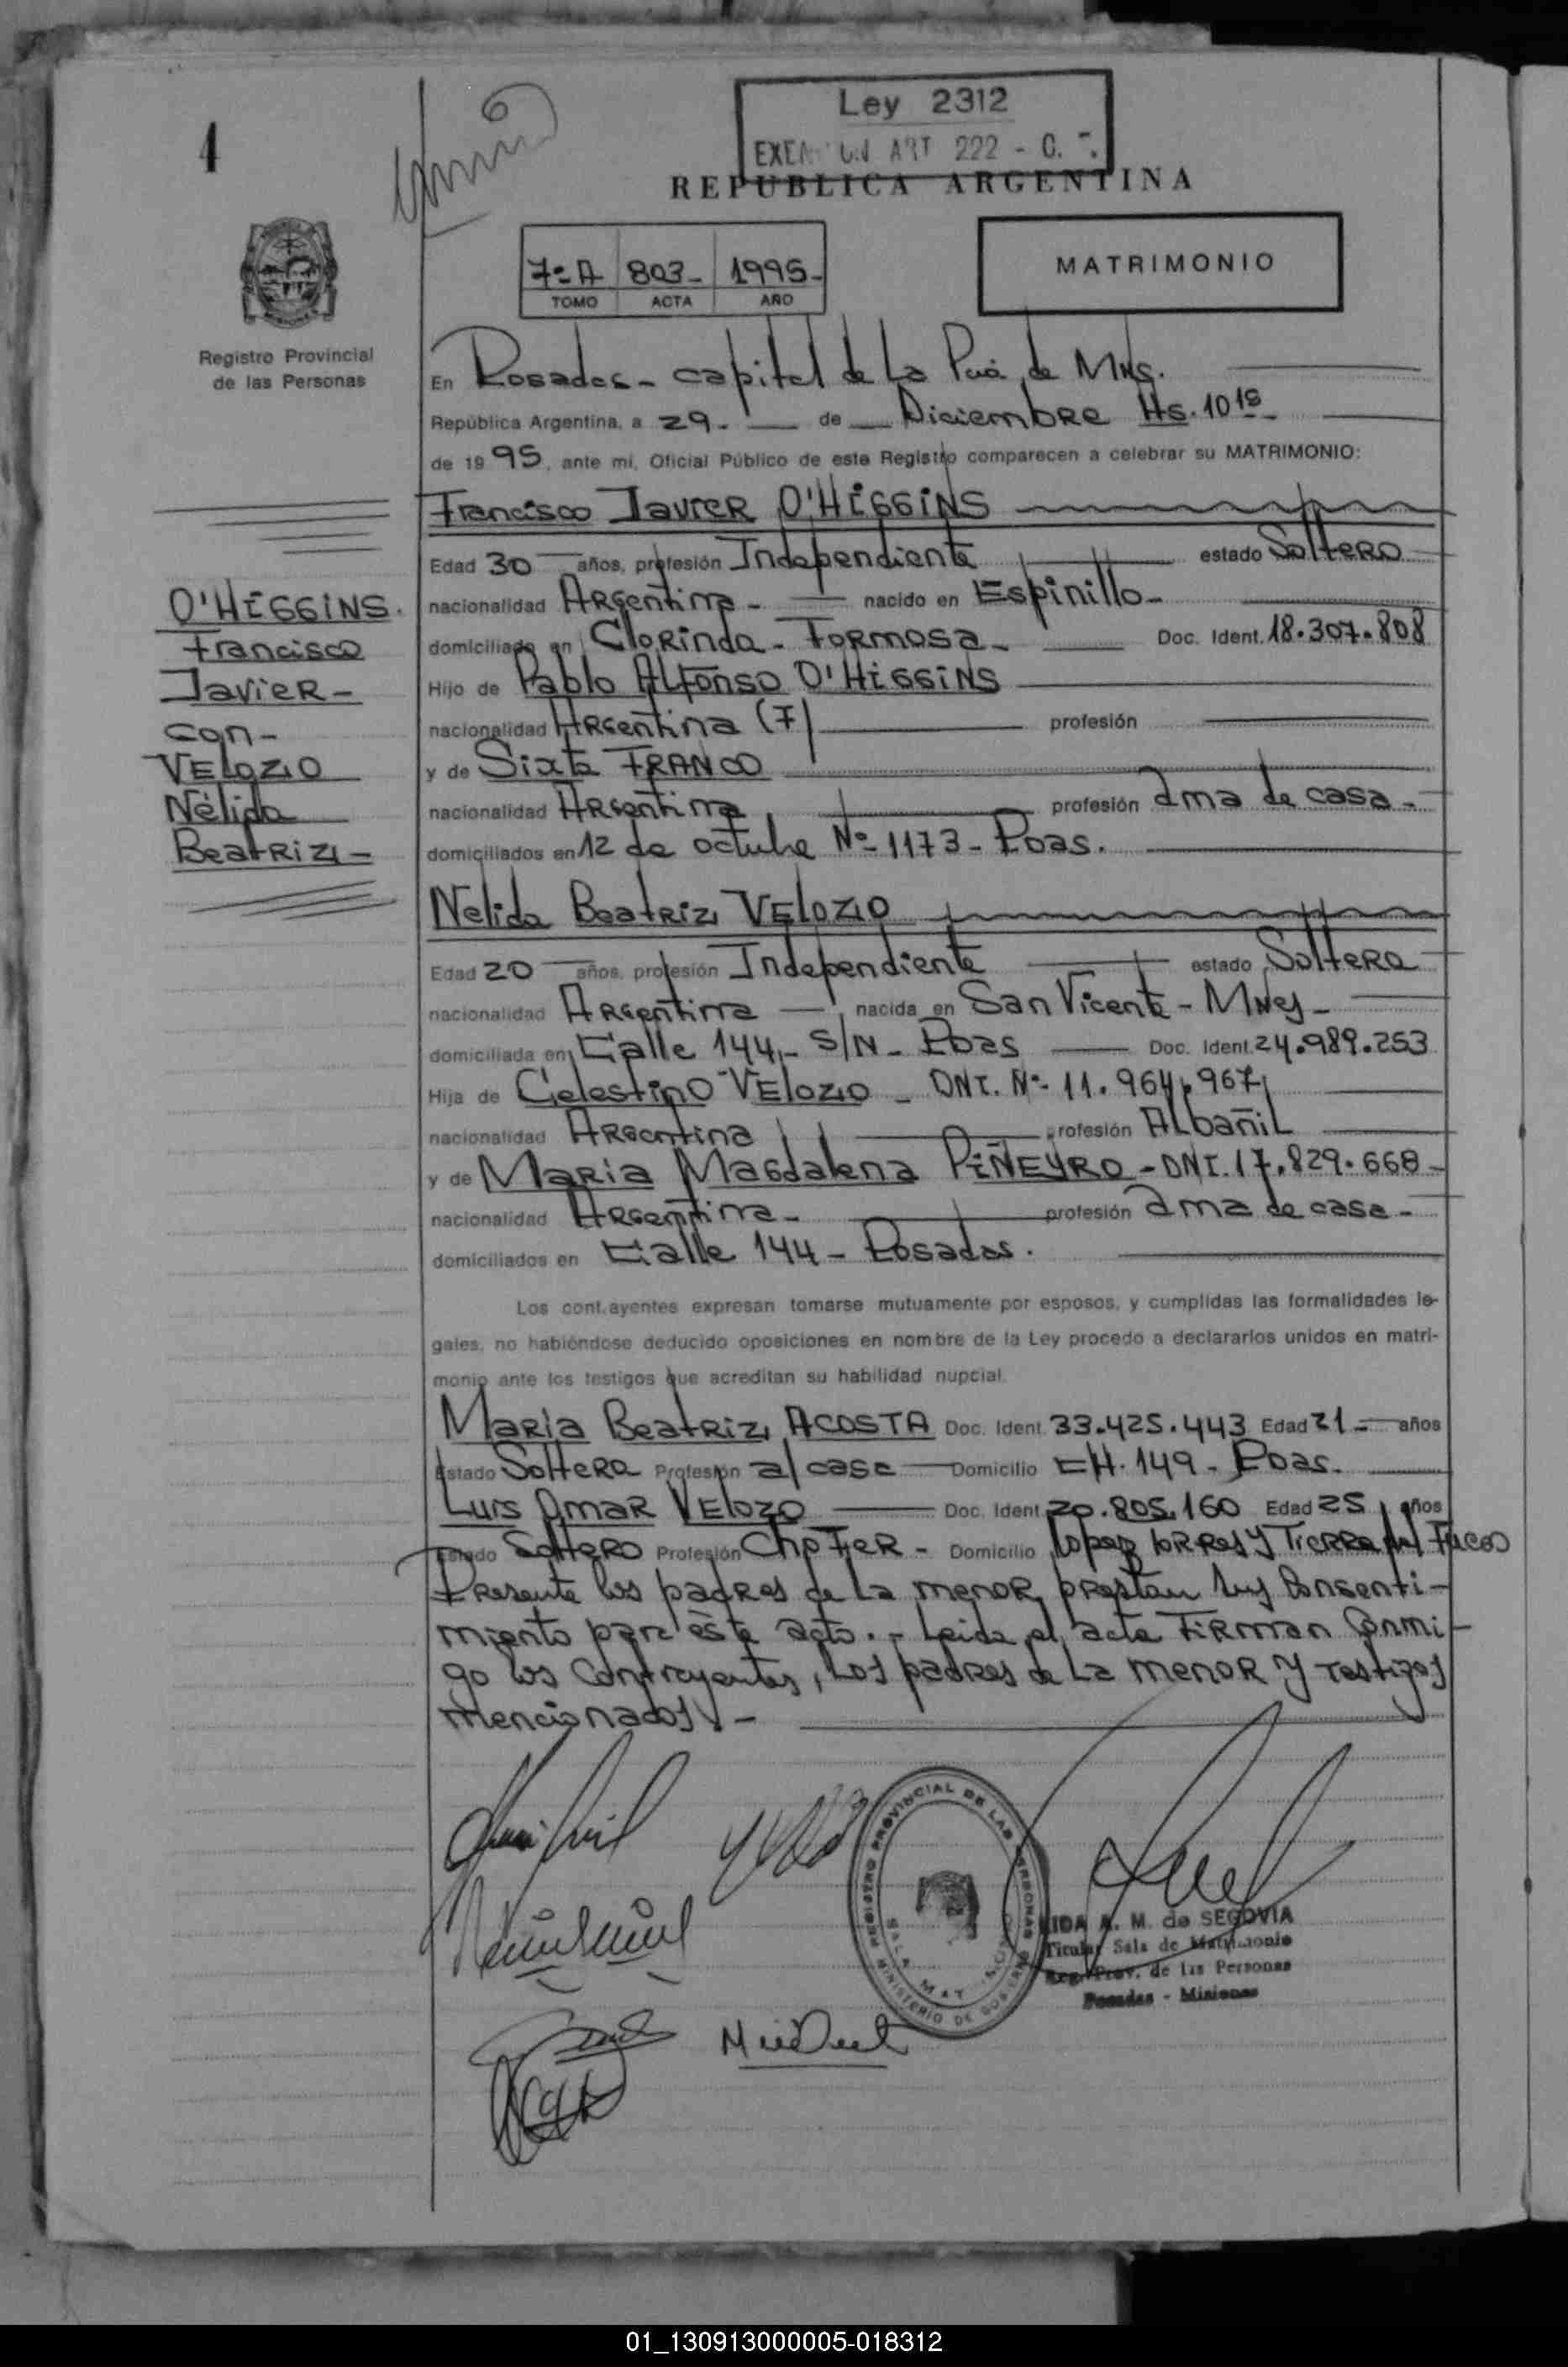 1
Ley 2312
ART 222 - C.
REPUBLICA ARGENTINA
7º A 803- 1995-
TOMO ACTA AÑO
MATRIMONIO
Registro Provincial
de las Personas
En Posadas - capital de La Pcia de Mns.
República Argentina, a 29.- de Diciembre Hs. 10 15
de 19 95, ante mi, Oficial Público de este Registro comparecen a celebrar su MATRIMONIO:
Francisco Javier O'HIGGINS
Edad 30 años, profesión Independiente estado Soltero
nacionalidad Argentina - nacido en Espinillo -
domiciliado en Clorinda - Formosa - Doc. Ident. 18.307.808
Hijo de Pablo Alfonso O'HIGGINS
nacionalidad Argentina (F) profesión
y de Sixta FRANCO
nacionalidad Argentina profesión ama de casa -
domiciliados en 12 de octubre Nº 1173 - Pdas.
O'HIGGINS.
Francisco
Javier -
con -
VELOZO
Nélida
Beatriz -
Nelida Beatriz VELOZO
Edad 20 años, profesión Independiente estado Soltera
nacionalidad Argentina nacida en San Vicente - Mnes -
domiciliada en Calle 144 - S/N - Pdas Doc. Ident. 24.989.253
Hija de Celestino VELOZO - DNI. Nº 11.964.967
nacionalidad Argentina profesión Albañil
y de Maria Magdalena PIÑEYRO - DNI. 17.829.668 -
nacionalidad Argentina - profesión ama de casa -
domiciliados en Calle 144 - Posadas.
Los contrayentes expresan tomarse mutuamente por esposos, y cumplidas las formalidades le-
gales, no habiéndose deducido oposiciones en nombre de la Ley procedo a declararlos unidos en matri-
monio ante los testigos que acreditan su habilidad nupcial.
Maria Beatriz ACOSTA Doc. Ident. 33.425.443 Edad 21 - años
Estado Soltera Profesión a/ casa Domicilio CH. 149 - Pdas.
Luis Omar VELOZO Doc. Ident. 20.805.160 Edad 25 años
Estado Soltero Profesión Chofer - Domicilio Lopez torres y Tierra del Fuego
Presente los padres de La menor prestan sus Consenti-
miento para éste acto. - Leida el acta Firman Conmi-
go los Contrayentes, Los padres de La menor y Testigos
mencionados. -
REGISTRO PROVINCIAL DE LAS PERSONAS
MINISTERIO DE GOBIERNO
SALA MAT
A. M. de SEGOVIA
Titular Sala de Matrimonio
Reg. Prov. de las Personas
Posadas - Misiones
01_130913000005-018312